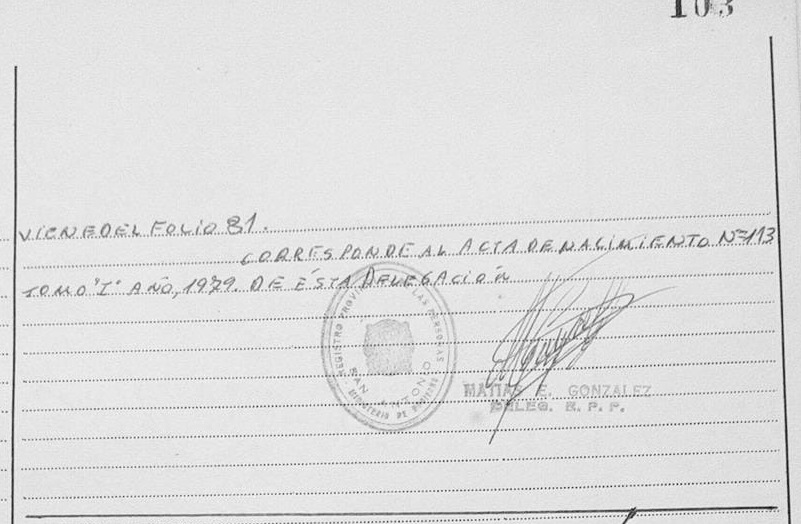 103
VIENE DEL FOLIO 81.
CORRESPONDE AL ACTA DE NACIMIENTO Nº 113
TOMO "I" AÑO, 1979. DE ÉSTA DELEGACIÓN
REGISTRO PROV LAS PERSONAS
SAN ANTONIO
MINISTERIO DE
MATIAS E. GONZALEZ
DELEG. R. P. P.